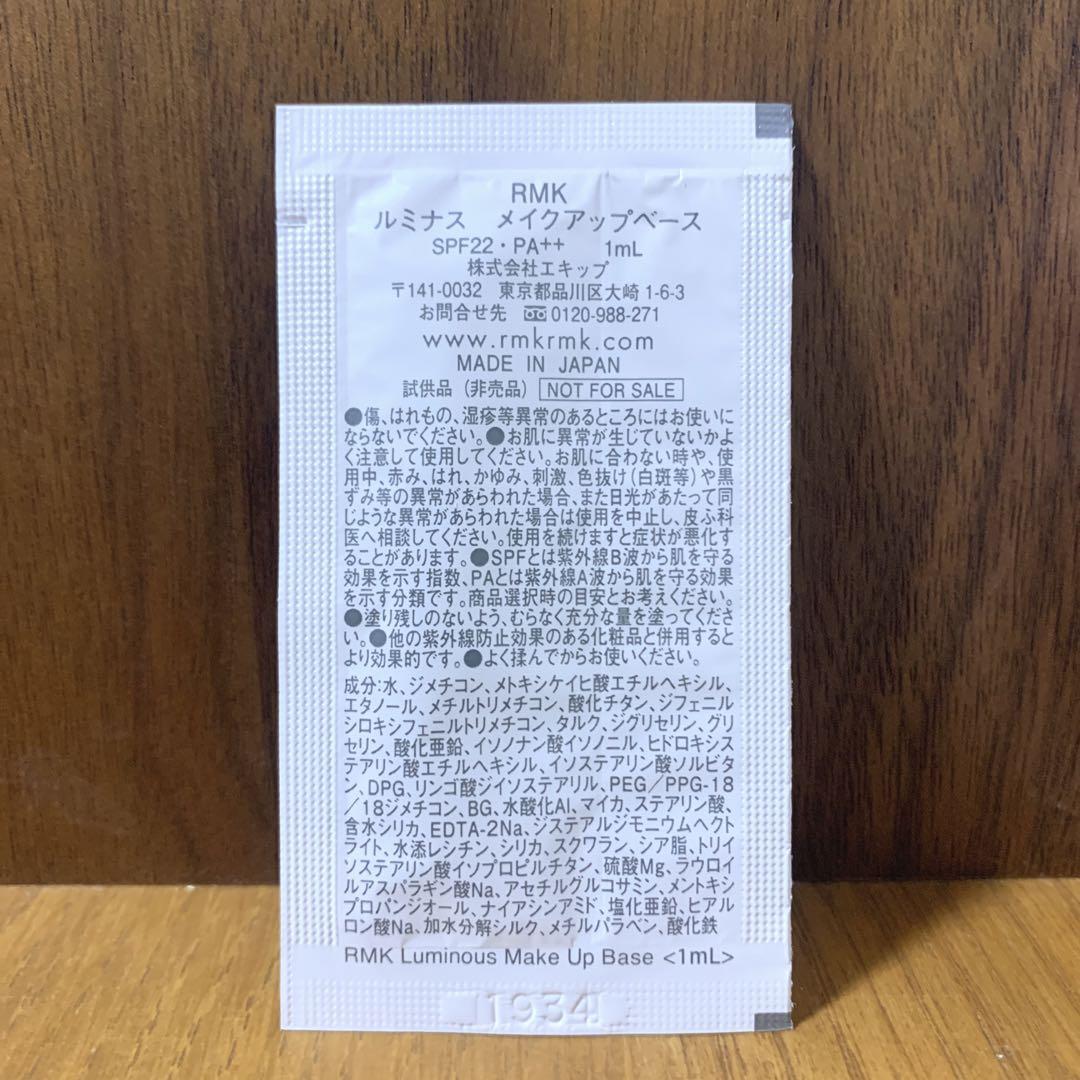 RMK
ルミナス　メイクアップベース
SPF22・PA++　1mL
株式会社エキップ
〒141-0032　東京都品川区大崎1-6-3
お問合せ先　0120-988-271
www.rmkrmk.com
MADE IN JAPAN
試供品（非売品）NOT FOR SALE
●傷、はれもの、湿疹等異常のあるところにはお使いに
ならないでください。●お肌に異常が生じていないかよ
く注意して使用してください。お肌に合わない時や、使
用中、赤み、はれ、かゆみ、刺激、色抜け（白斑等）や黒
ずみ等の異常があらわれた場合、また日光があたって同
じような異常があらわれた場合は使用を中止し、皮ふ科
医へ相談してください。使用を続けますと症状が悪化す
ることがあります。●SPFとは紫外線B波から肌を守る
効果を示す指数、PAとは紫外線A波から肌を守る効果
を示す分類です。商品選択時の目安とお考えください。
●塗り残しのないよう、むらなく充分な量を塗ってくださ
い。●他の紫外線防止効果のある化粧品と併用すると
より効果的です。●よく揉んでからお使いください。
成分:水、ジメチコン、メトキシケイヒ酸エチルヘキシル、
エタノール、メチルトリメチコン、酸化チタン、ジフェニル
シロキシフェニルトリメチコン、タルク、ジグリセリン、グリ
セリン、酸化亜鉛、イソノナン酸イソノニル、ヒドロキシス
テアリン酸エチルヘキシル、イソステアリン酸ソルビタ
ン、DPG、リンゴ酸ジイソステアリル、PEG／PPG-18
/18ジメチコン、BG、水酸化Al、マイカ、ステアリン酸、
含水シリカ、EDTA-2Na、ジステアルジモニウムヘクト
ライト、水添レシチン、シリカ、スクワラン、シア脂、トリイ
ソステアリン酸イソプロピルチタン、硫酸Mg、ラウロイ
ルアスパラギン酸Na、アセチルグルコサミン、メントキシ
プロパンジオール、ナイアシンアミド、塩化亜鉛、ヒアル
ロン酸Na、加水分解シルク、メチルパラベン、酸化鉄
RMK Luminous Make Up Base <1mL>
1934